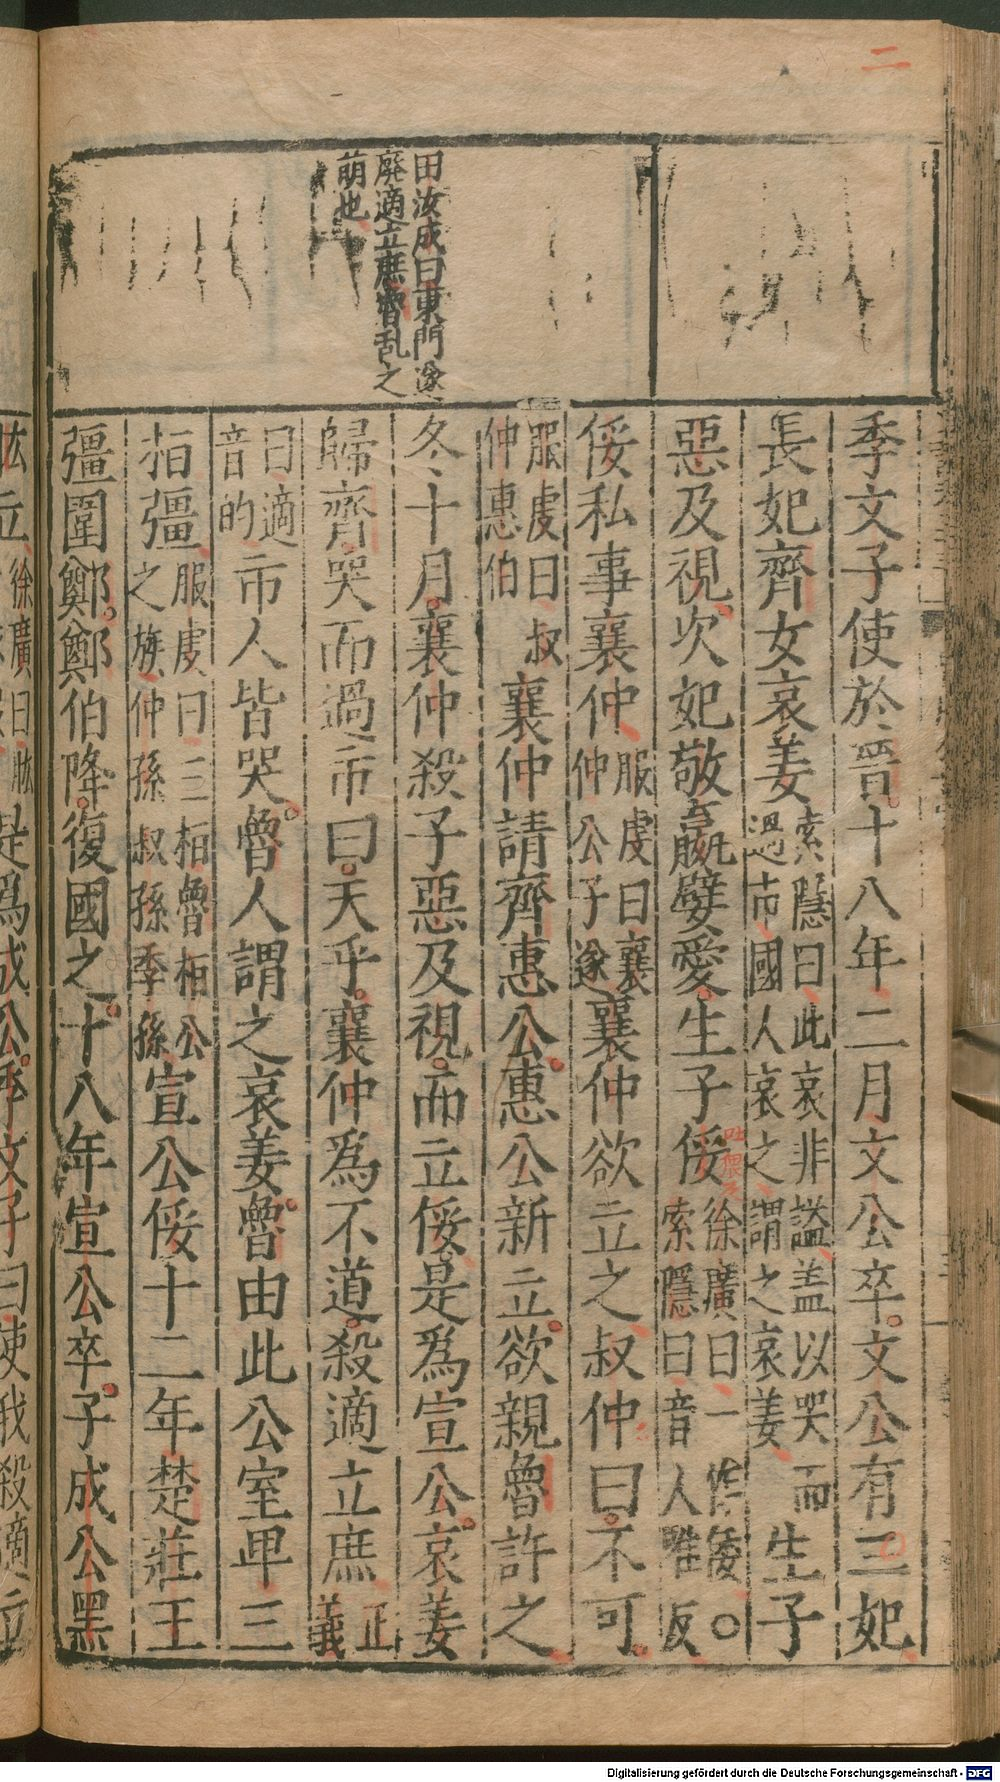 二
田汝成曰東門遂
廢適立庶魯乱之
萌也
季文子使於晉十八年二月文公卒文公有三妃
長妃齊女哀姜索隱曰此哀非謚盖以哭而過市國人哀之謂之哀姜生子
惡及視次妃敬嬴嬖愛生子俀徐廣曰一作倭○索隱曰音人唯反
俀私事襄仲服虔曰襄仲公子遂襄仲欲立之叔仲曰不可
服虔曰叔仲惠伯襄仲請齊惠公惠公新立欲親魯許之
冬十月襄仲殺子惡及視而立俀是為宣公哀姜
歸齊哭而過市曰天乎襄仲為不道殺適立庶正義
曰適音的市人皆哭魯人謂之哀姜魯由此公室卑三
桓彊服虔曰三桓魯桓公之族仲孫叔孫季孫宣公俀十二年楚莊王
彊圍鄭鄭伯降復國之十八年宣公卒子成公黑
肱立徐廣曰肱
是為成公季文子曰使我殺適立
Digitalisierung gefördert durch die Deutsche Forschungsgemeinschaft - DFG